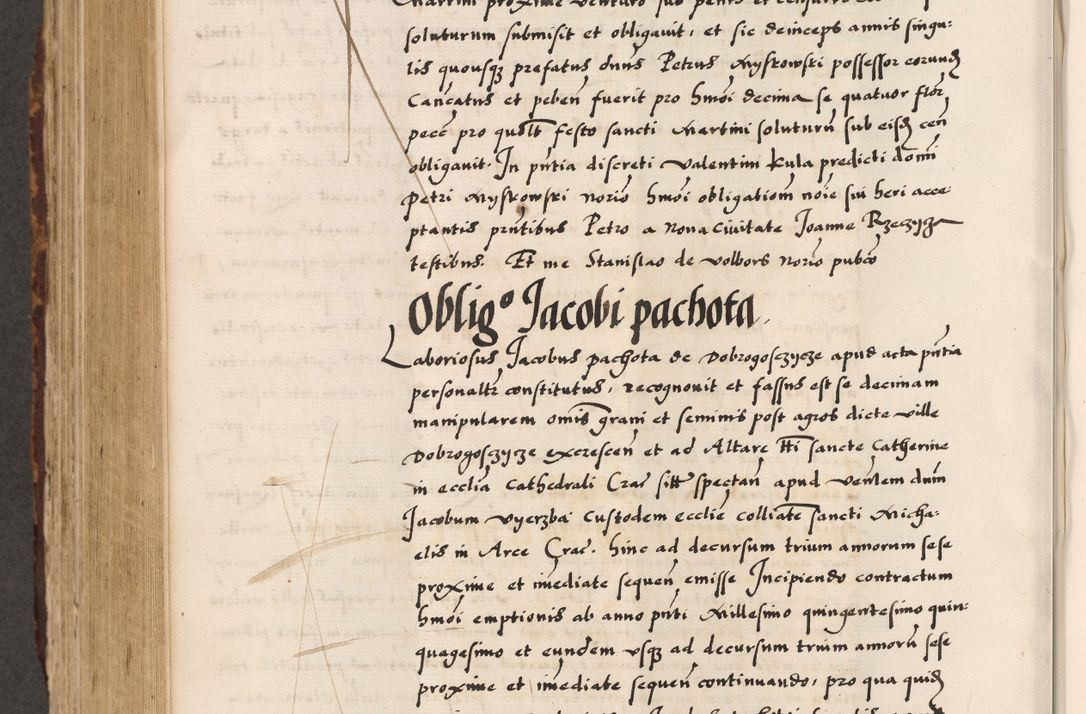 Martini proxime venturo sub penis et censuris
soluturum submisit et obligauit, et sic deinceps annis singu-
lis quousqz prefatus dnus Petrus Myskowski possessor eorund
Cancatus et peben fuerit pro hmoi decima se quatuor flor
pecc pro quolt festo sancti Martini soluturu sub eisd cen
obligauit. In pntia discreti Valentini Kula predicti domi
Petri Myskowski norio hmoi obligatiom noie sui heri acce
ptantis pntibus Petro a Nona Ciuitate Joanne Rzeczycza
testibus. Et me Stanislao de Volbors Norio pubco
Oblig° Jacobi pachota
Laboriosus Jacobus pachota de Dobrogosczycze apud acta pntia
personaltr constitutus, recognouit et fassus est se decimam
manipularem omis grani et seminis post agros dicte ville
Dobrogosczycze excrescen et ad Altare tti sancte Catherine
in ecclia Cathedrali Crac sitt spectan apud venlem dum
Jacobum Vyerzba Custodem ecclie colliate sancti Micha-
elis in Arce Crac. hinc ad decursum trium annorum sese
proxime et imediate sequen emisse Incipiendo contractum
hmoi emptionis ab anno pnti Millesimo quingentesimo quin-
quagesimo et eundem vsqz ad decursum trium annoru sese
proxime et imediate sequen continuando, pro qua quid